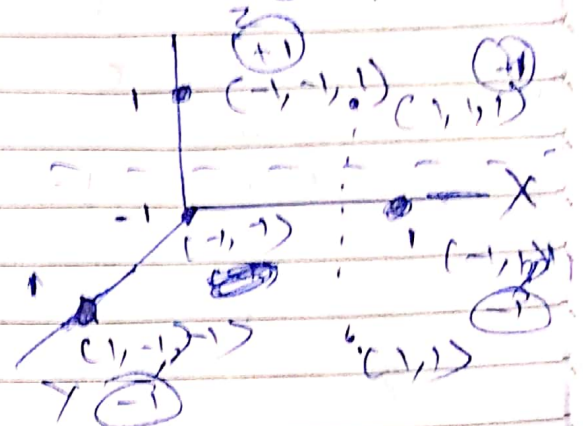 +1
+1
1 (-1, -1, 1) (1, 1, 1)
-1 X
(-1, -1) 1
1 (-1, 1,
-1
(1, -1, -1) (1, 1)
Y -1